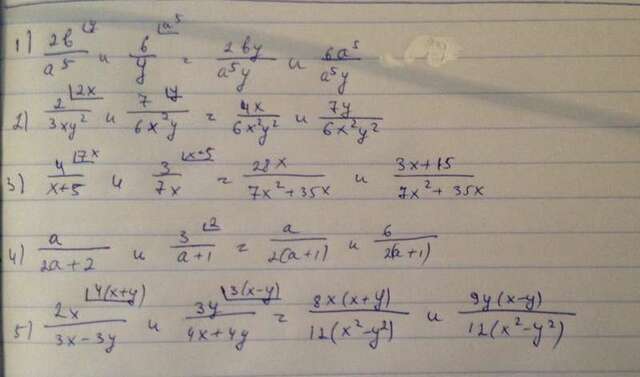 1) 2b/a⁵ ⌊y и 6/y ⌊a⁵ = 2by/a⁵y и 6a⁵/a⁵y
2) 2/3xy² ⌊2x и 7/6x²y ⌊y = 4x/6x²y² и 7y/6x²y²
3) 4/x+5 ⌊7x и 3/7x ⌊x+5 = 28x/7x²+35x и 3x+15/7x²+35x
4) a/2a+2 и 3/a+1 ⌊2 = a/2(a+1) и 6/2(a+1)
5) 2x/3x-3y ⌊4(x+y) и 3y/4x+4y ⌊3(x-y) = 8x(x+y)/12(x²-y²) и 9y(x-y)/12(x²-y²)